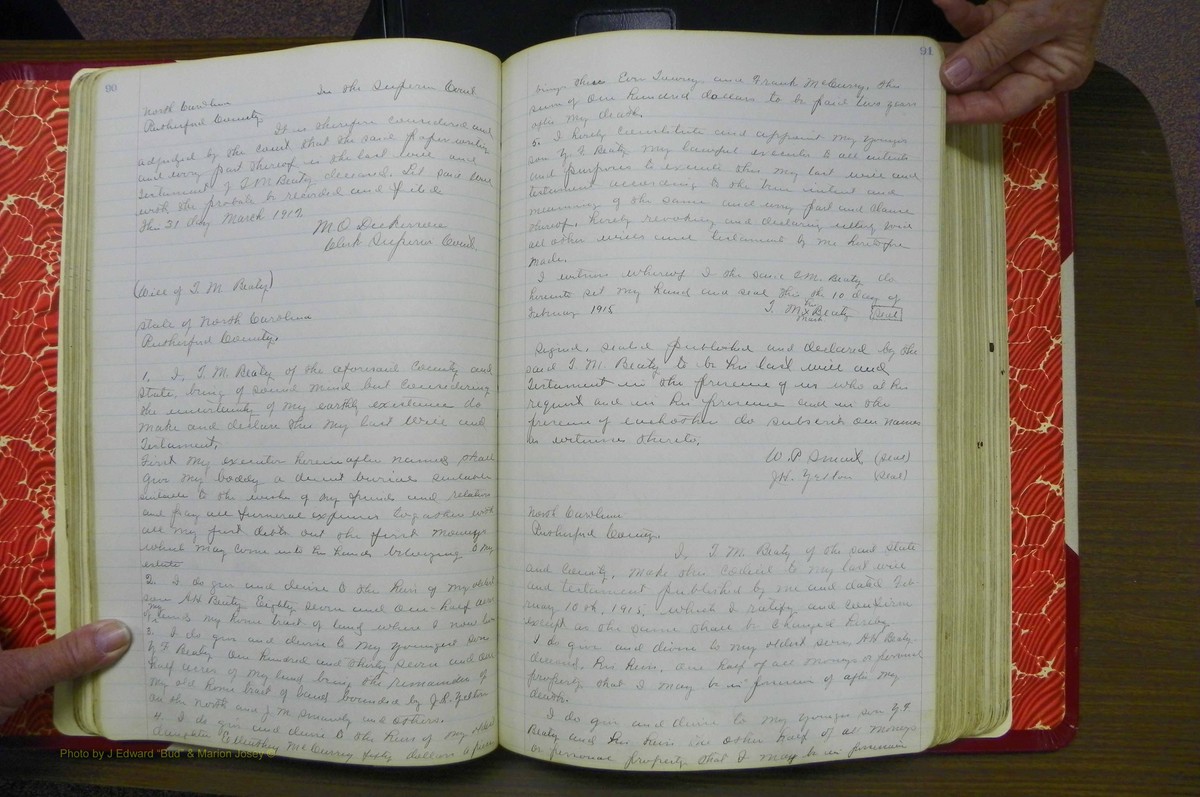 90
In the Superior Court
North Carolina
Rutherford County
It is therefore considered and
adjudged by the court that the said paper writing
and every part thereof is the last will and
Testament of T. M. Beaty deceased. Let said will
with the probate be recorded and filed
this 21 day March 1917.
M. O. Dickerson
Clerk Superior Court.
(Will of T. M. Beaty)
State of North Carolina
Rutherford County.
1. I. T. M. Beaty of the aforesaid County and
State, being of sound mind but considering
the uncertainty of my earthly existence do
make and declare this my last will and
Testament.
First My executor hereinafter named shall
give my boddy a decent burial
suitable to the wishes of my friends and relatives
and pay all funeral expenses together with
all my just debts out the first moneys
which may come into his hands belonging to my
estate
2. I do give and devise to the heirs of my oldest
son A H Beaty Eighty seven and one-half acres
of my lands my home tract of land where I now live
3. I do give and devise to my youngest son
Y. F. Beaty One hundred and thirty seven and one
half acres of my land being the remainder of
my old home tract of land bounded by J. R. Yelton
on the north and J. M. and others.
4. I do give and devise to the heirs of my oldest
daughter McCurry fifty dollars a piece
91
being three and Frank McCurry the
sum of One hundred dollars to be paid two years
after my death.
5. I hereby constitute and appoint my younger
son Y F Beaty my lawful executor to all intents
and purposes to execute this my last will and
testament according to the true intent and
meaning of the same and every part and clause
thereof, hereby revoking and declaring utterly void
all other wills and testament by me heretofore
made.
I witness whereof I the said T. M. Beaty do
hereunto set my hand and seal this the 10 day of
February 1915 T. M. his X mark Beaty (Seal)
Signed, sealed published and declared by the
said T. M. Beaty to be his last will and
Testament in the presence of us who at his
request and in his presence and in the
presence of eachother do subscribe our names
as witness thereto.
W. P. Smart (Seal)
J. H. Yelton (Seal)
North Carolina
Rutherford County.
I, T. M. Beaty of the said State
and County, make this codicil to my last will
and testament published by me and dated Feb
ruary 10th, 1915, which I ratify and confirm
except as the same shall be changed hereby.
I do give and devise to my oldest son, A H. Beaty
deceased, his heirs, one half of all moneys or personal
property that I may be in possession of after my
death.
I do give and devise to my younger son Y. F.
Beaty and his heirs the other half of all moneys
or personal property that I may be in possession
Photo by J Edward "Bud" & Marion Josey ©